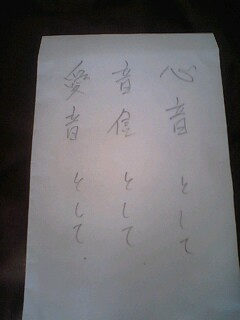 心音として
音信として
愛音として.